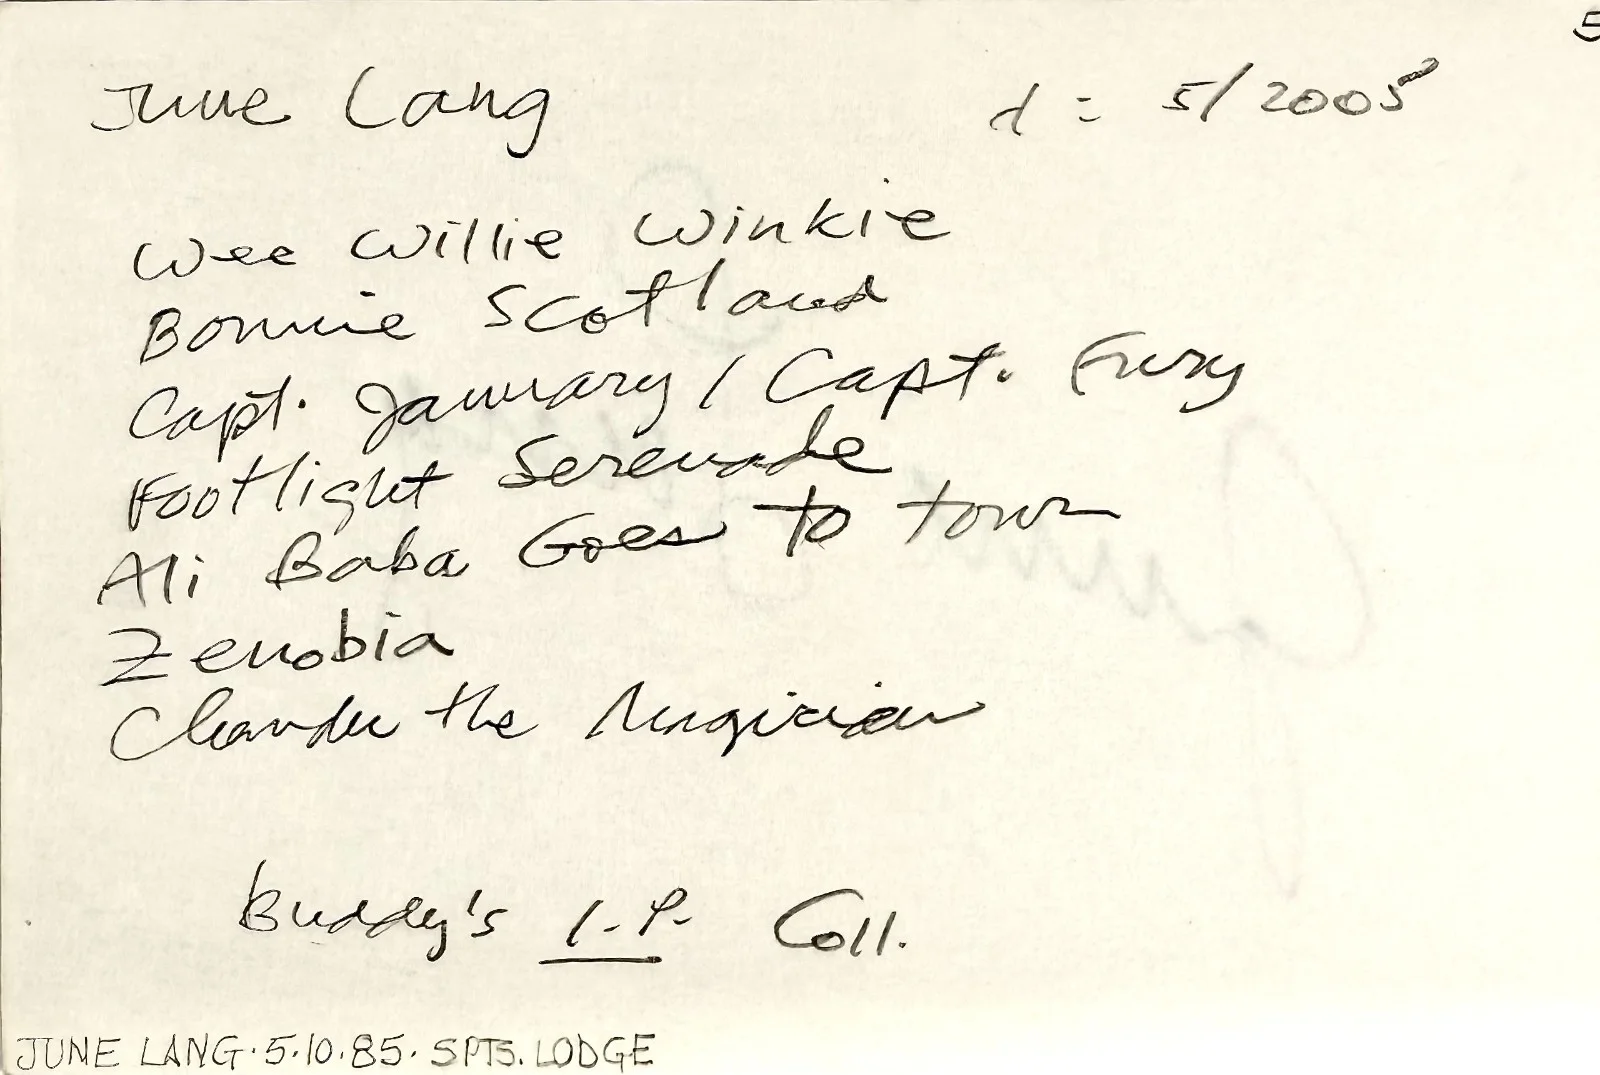 5
June Lang d: 5/2005
Wee Willie Winkie
Bonnie Scotland
Capt. January / Capt. Fury
Footlight Serenade
Ali Baba Goes to town
Zenobia
Chandu the Magician
Buddy's I.P. Coll.
JUNE LANG. 5.10.85. SPTS. LODGE